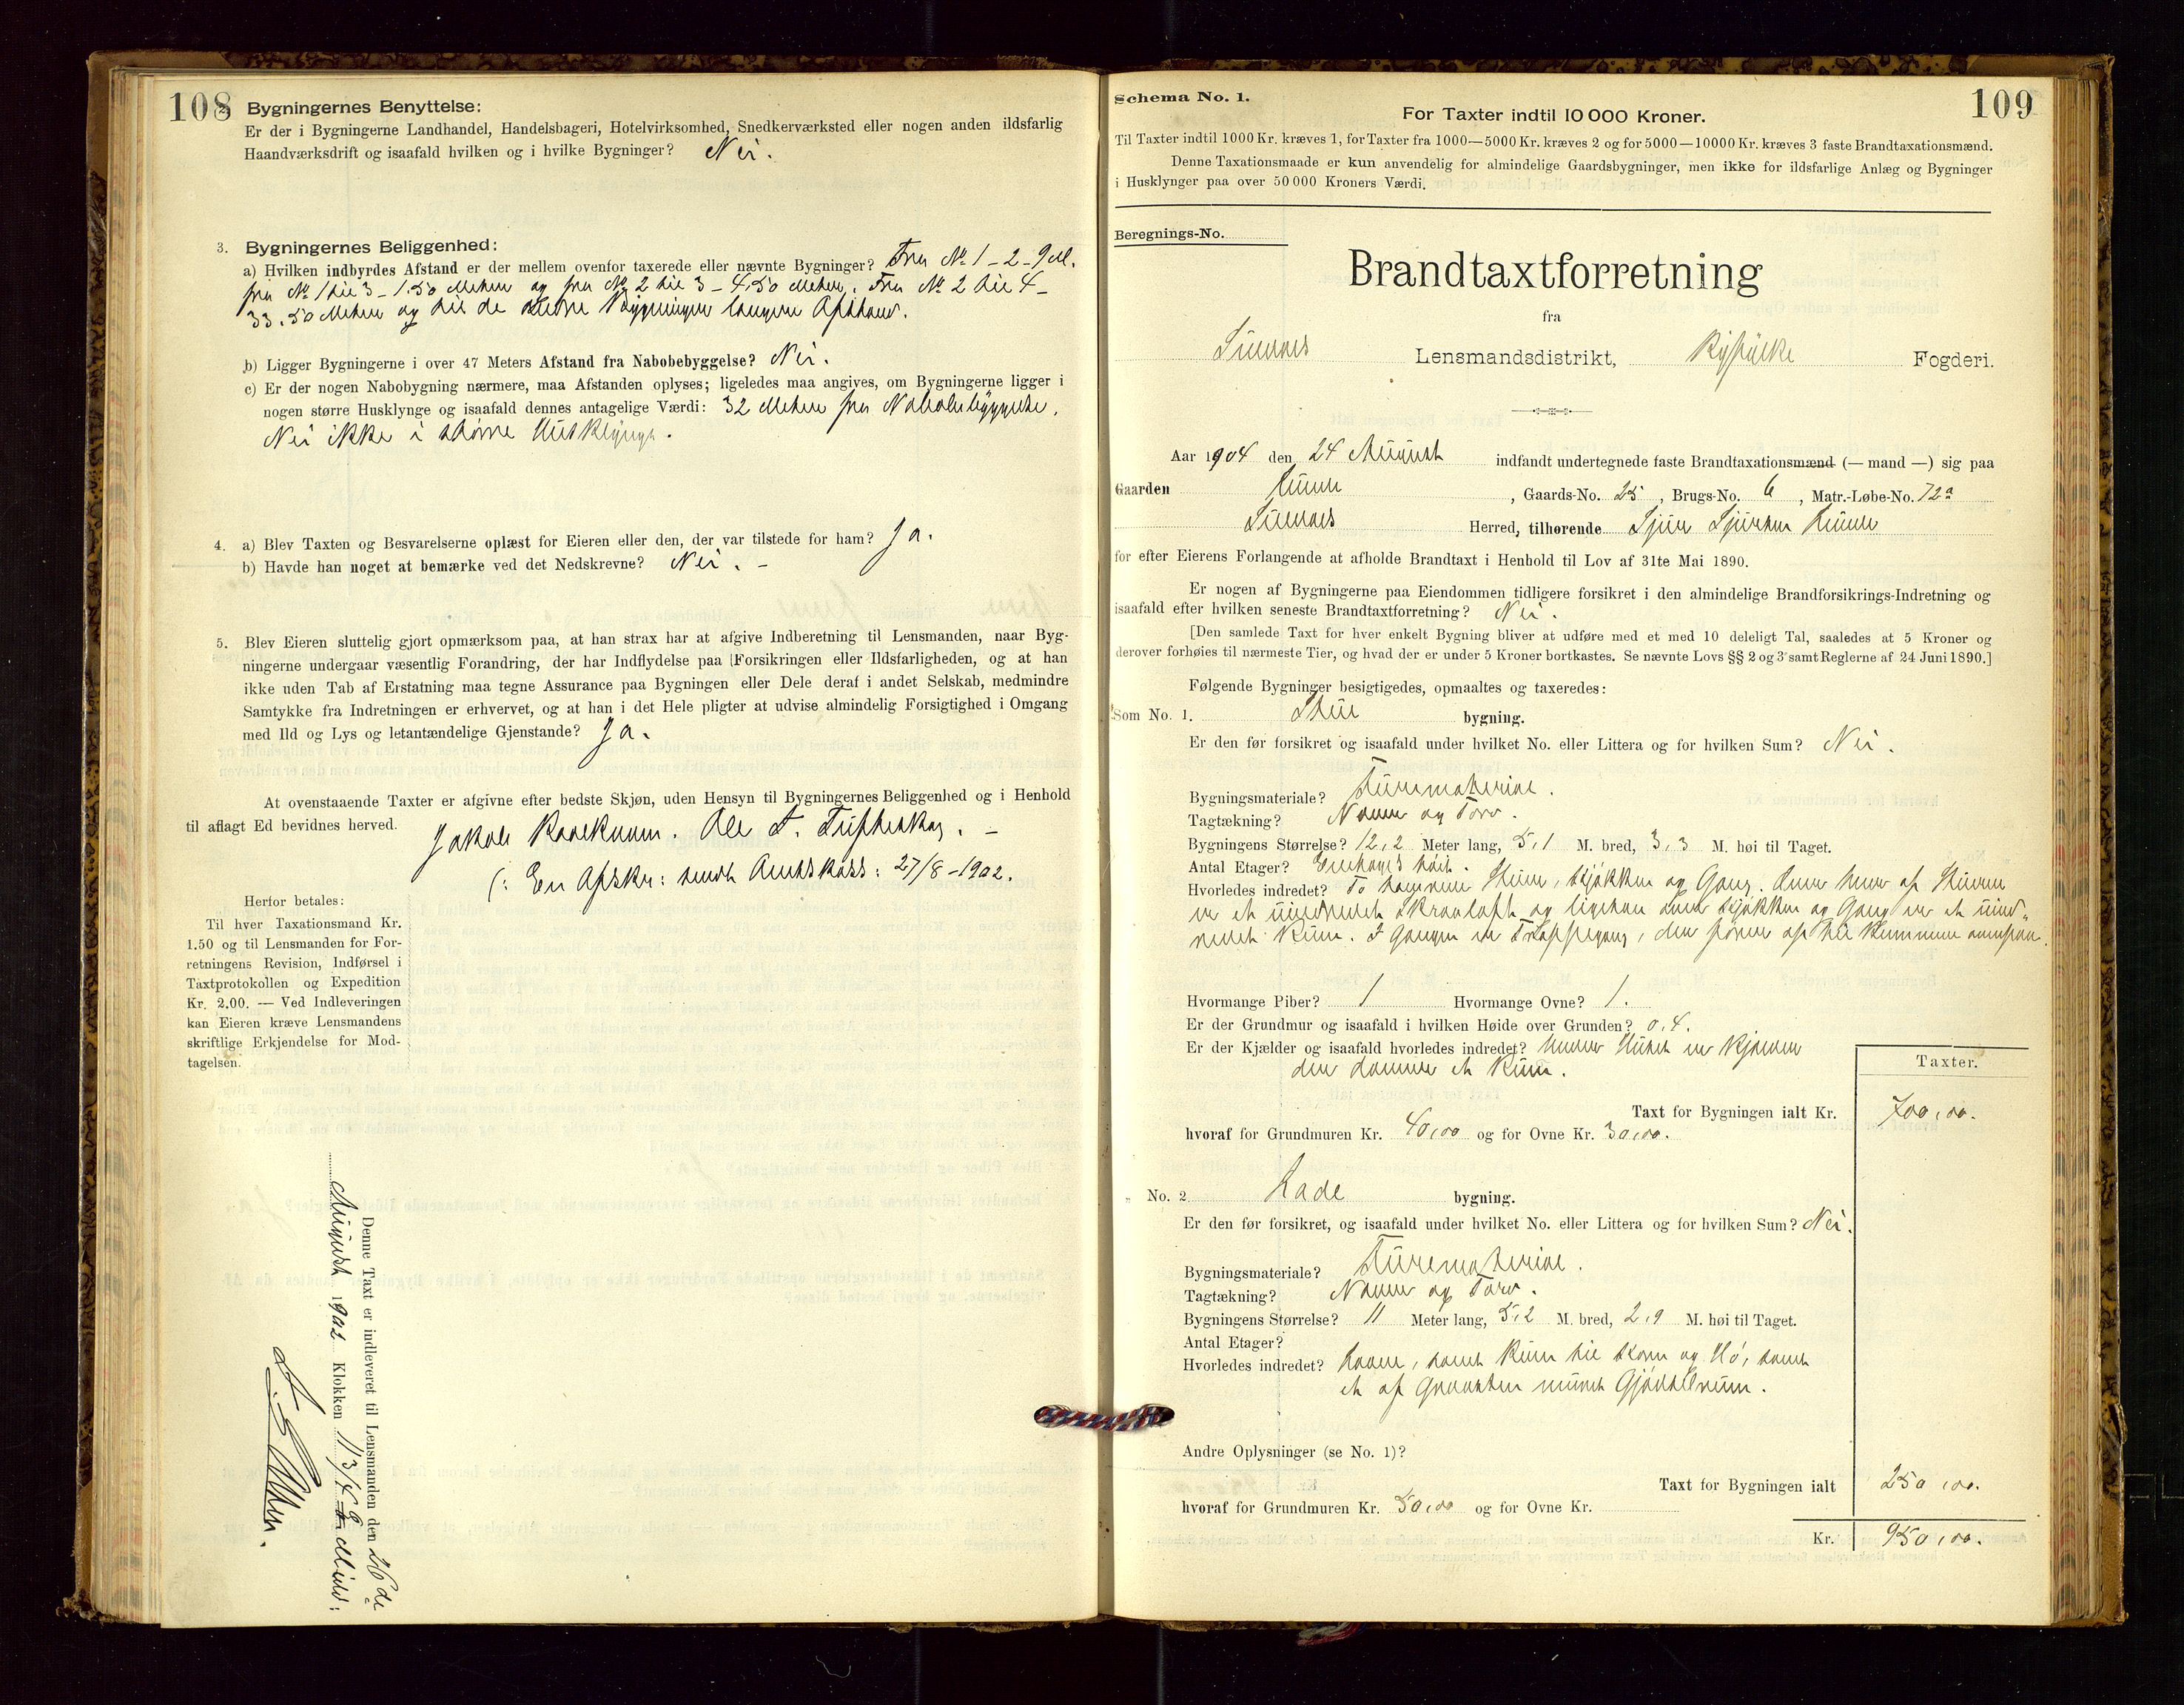 108
2. Bygningernes Benyttelse:
Er der i Bygningerne Landhandel, Handelsbageri, Hotelvirksomhed, Snedkerværksted eller nogen anden ildsfarlig
Haandværksdrift og isaafald hvilken og i hvilke Bygninger? Nei.
3. Bygningernes Beliggenhed:
a) Hvilken indbyrdes Afstand er der mellem ovenfor taxerede eller nævnte Bygninger? Fra No 1 – 2 – 9 M.
fra No 1 til 3 – 1.50 Meter og fra No 2 til 3 – 4,50 Meter. Fra No 2 til 4 –
33.50 Meter og til de andre Bygninger længere Afstand.
b) Ligger Bygningerne i over 47 Meters Afstand fra Nabobebyggelse? Nei.
c) Er der nogen Nabobygning nærmere, maa Afstanden oplyses; ligeledes maa angives, om Bygningerne ligger i
nogen større Husklynge og isaafald dennes antagelige Værdi: 32 Meter fra Nabobebyggelse.
Nei ikke i større Husklynge.
4. a) Blev Taxten og Besvarelserne oplæst for Eieren eller den, der var tilstede for ham? Ja.
b) Havde han noget at bemærke ved det Nedskrevne? Nei. –
5. Blev Eieren sluttelig gjort opmærksom paa, at han strax har at afgive Indberetning til Lensmanden, naar Byg-
ningerne undergaar væsentlig Forandring, der har Indflydelse paa Forsikringen eller Ildsfarligheden, og at han
ikke uden Tab af Erstatning maa tegne Assurance paa Bygningen eller Dele deraf i andet Selskab, medmindre
Samtykke fra Indretningen er erhvervet, og at han i det Hele pligter at udvise almindelig Forsigtighed i Omgang
med Ild og Lys og letantændelige Gjenstande? Ja.
At ovenstaaende Taxter er afgivne efter bedste Skjøn, uden Hensyn til Bygningernes Beliggenhed og i Henhold
til aflagt Ed bevidnes herved.
Jakob Ole T. –
(: En Afskr: sendt Amtskass: 27/8 – 1902.
Herfor betales:
Til hver Taxationsmand Kr.
1.50 og til Lensmanden for For-
retningens Revision, Indførsel i
Taxtprotokollen og Expedition
Kr. 2.00. — Ved Indleveringen
kan Eieren kræve Lensmandens
skriftlige Erkjendelse for Mod-
tagelsen.
Denne Taxt er indleveret til Lensmanden den 26de
August 1902 Klokken
109
Schema No. 1.
For Taxter indtil 10 000 Kroner.
Til Taxter indtil 1000 Kr. kræves 1, for Taxter fra 1000—5000 Kr. kræves 2 og for 5000—10000 Kr. kræves 3 faste Brandtaxationsmænd.
Denne Taxationsmaade er kun anvendelig for almindelige Gaardsbygninger, men ikke for ildsfarlige Anlæg og Bygninger
i Husklynger paa over 50 000 Kroners Værdi.
Beregnings-No.
Brandtaxtforretning
fra
Suldal Lensmandsdistrikt, Ryfylke Fogderi.
Aar 1904 den 24 August indfandt undertegnede faste Brandtaxationsmænd (— mand —) sig paa
Gaarden , Gaards-No. 25, Brugs-No. 6, Matr.-Løbe-No. 72a
Herred, tilhørende
for efter Eierens Forlangende at afholde Brandtaxt i Henhold til Lov af 31te Mai 1890.
Er nogen af Bygningerne paa Eiendommen tidligere forsikret i den almindelige Brandforsikrings-Indretning og
isaafald efter hvilken seneste Brandtaxtforretning? Nei.
[Den samlede Taxt for hver enkelt Bygning bliver at udføre med et med 10 deleligt Tal, saaledes at 5 Kroner og
derover forhøies til nærmeste Tier, og hvad der er under 5 Kroner bortkastes. Se nævnte Lovs §§ 2 og 3 samt Reglerne af 24 Juni 1890.]
Følgende Bygninger besigtigedes, opmaaltes og taxeredes:
Som No. 1. Stue bygning.
Er den før forsikret og isaafald under hvilket No. eller Littera og for hvilken Sum? Nei.
Bygningsmateriale? Furemateriale.
Tagtækning? Næver og Torv.
Bygningens Størrelse? 12,2 Meter lang, 5,1 M. bred, 3,3 M. høi til Taget.
Antal Etager? Enetages høit.
Hvorledes indredet? To Stuer, Kjøkken og Gang. Over af Stuerne
er et uindredet Skraaloft og ligesaa over Kjøkken og Gang er et uind-
redet Rum. I Gangen er Trappegang, der fører op til Rummene ovenpaa.
Hvormange Piber? 1 Hvormange Ovne? 1.
Er der Grundmur og isaafald i hvilken Høide over Grunden? 0,4.
Er der Kjælder og isaafald hvorledes indredet? Under Huset er Kjælder
der danner et Rum.
Taxter.
Taxt for Bygningen ialt Kr. 700,00.
hvoraf for Grundmuren Kr. 40,00 og for Ovne Kr. 30,00.
" No. 2 Lade bygning.
Er den før forsikret, og isaafald under hvilket No. eller Littera og for hvilken Sum? Nei.
Bygningsmateriale? Furemateriale.
Tagtækning? Næver og Torv.
Bygningens Størrelse? 11 Meter lang, 5,2 M. bred, 2,9 M. høi til Taget.
Antal Etager?
Hvorledes indredet? Laave, samt Rum til Korn og Hø, samt
et af Graasten muret Gjødselrum.
Andre Oplysninger (se No. 1)?
Taxt for Bygningen ialt 250,00.
hvoraf for Grundmuren Kr. 50,00 og for Ovne Kr.
Kr. 950,00.